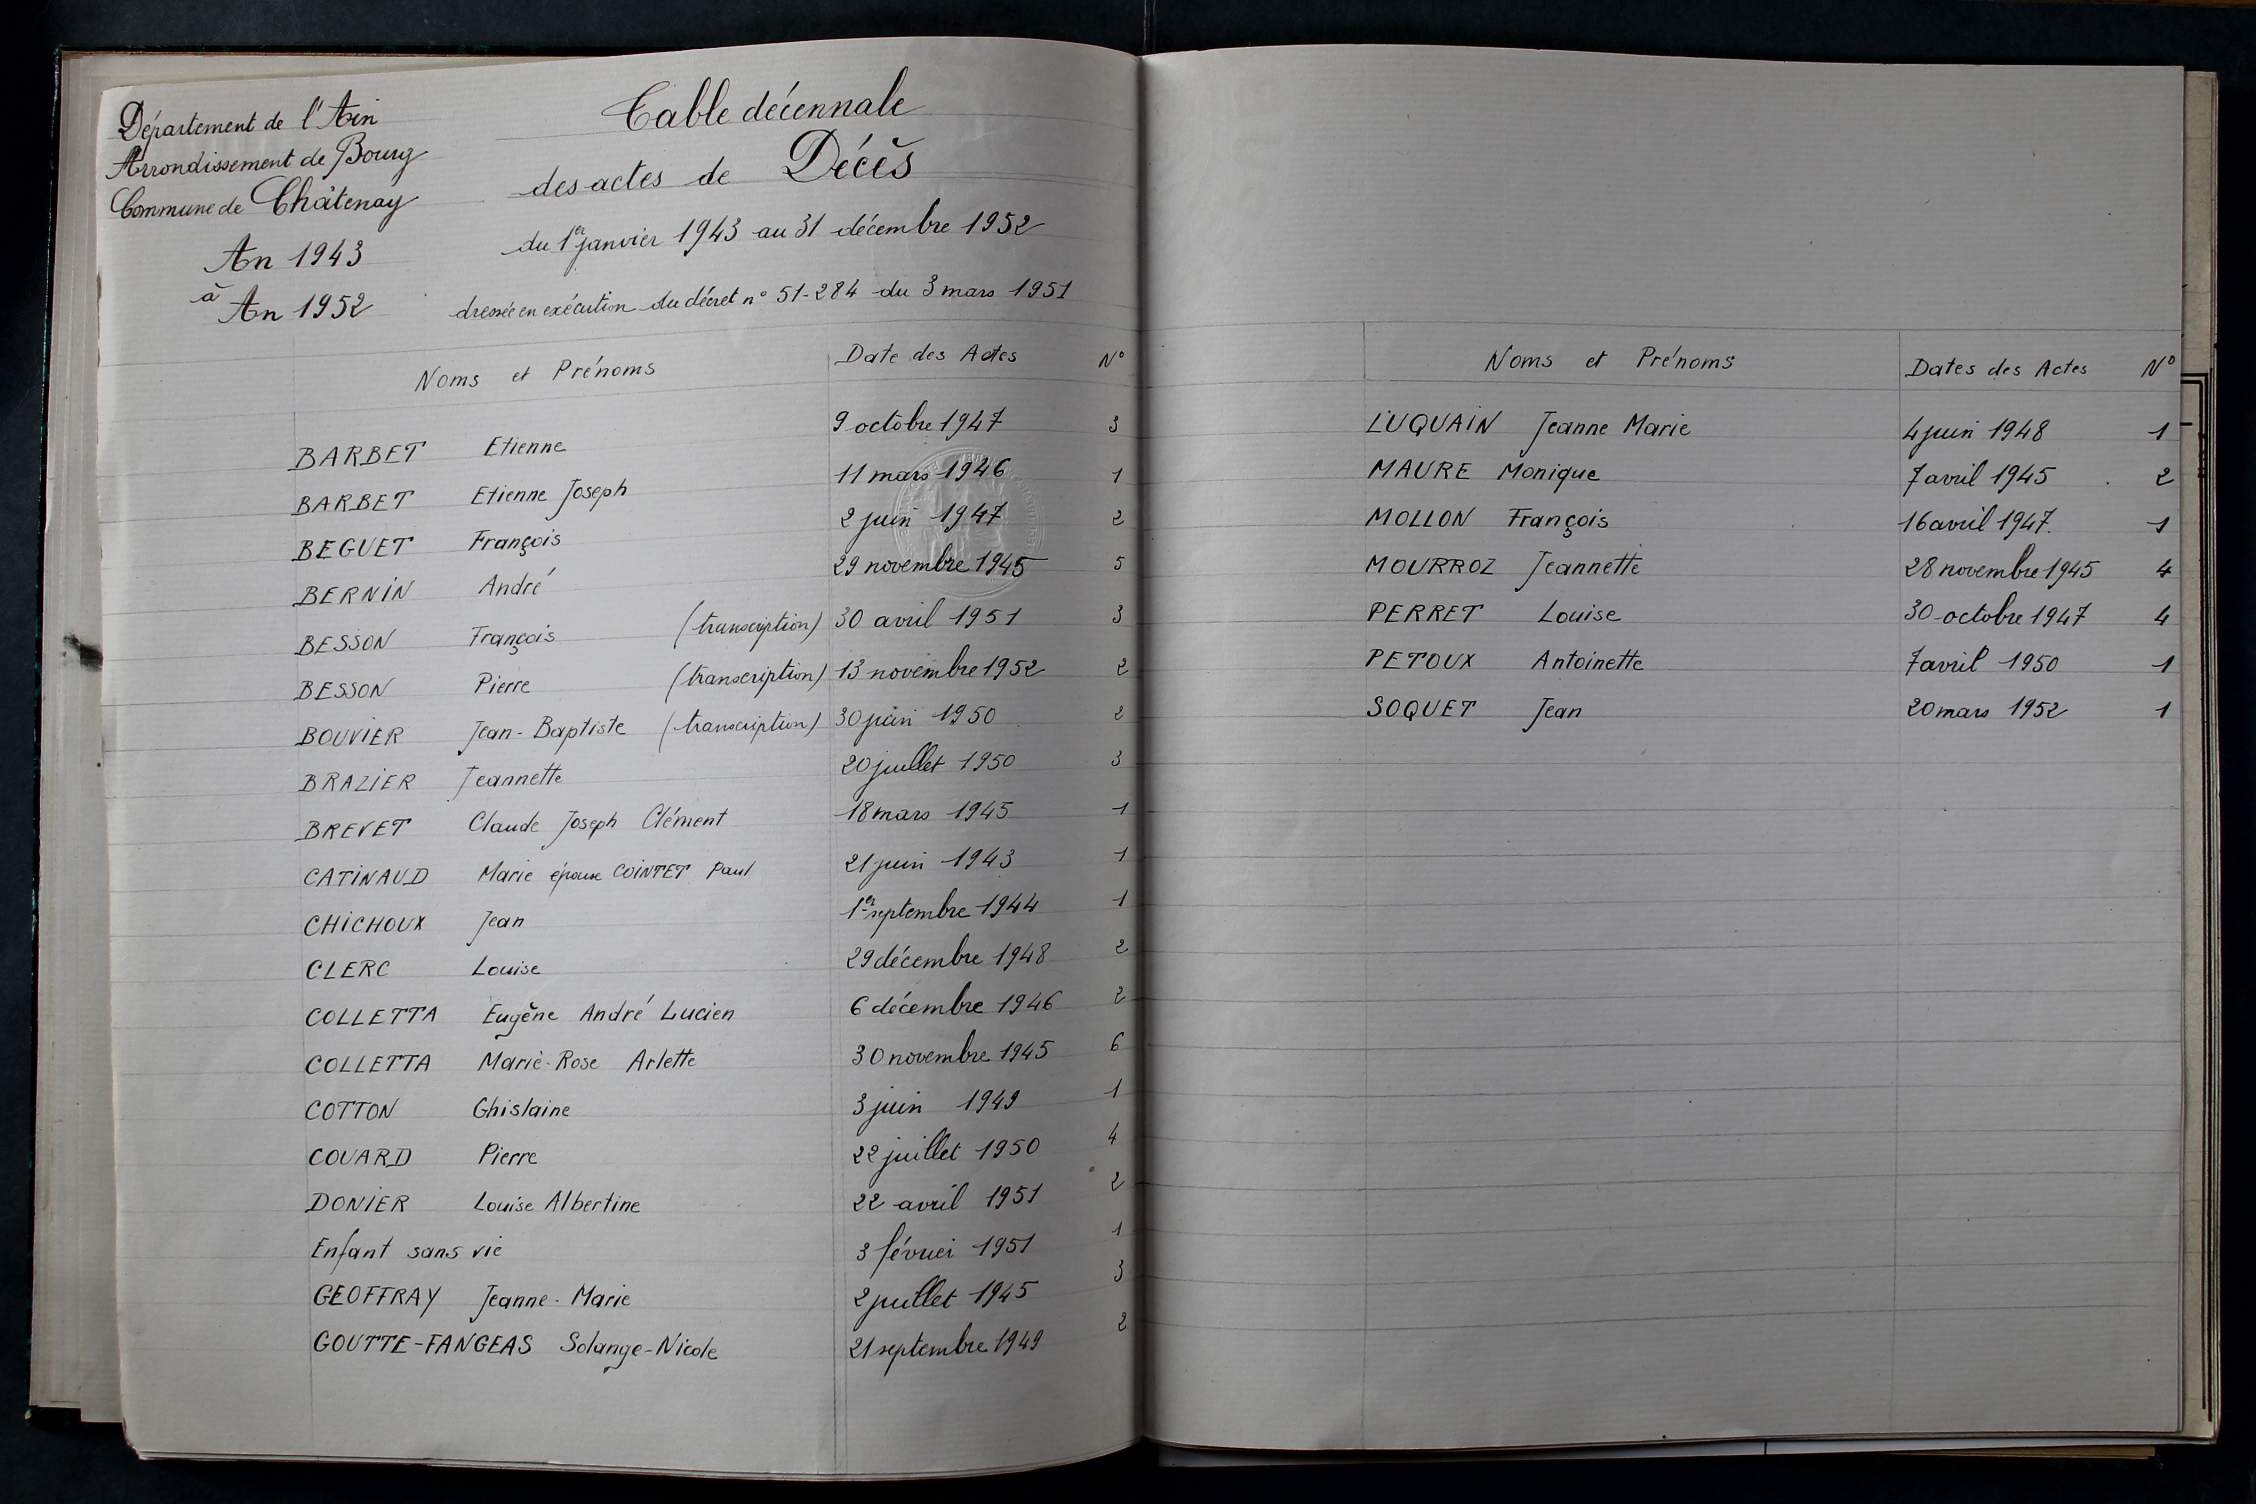 Département de l'Ain
Arrondissement de Bourg
Commune de Châtenay
An 1943
à An 1952
Table décennale
des actes de Décès
du 1er janvier 1943 au 31 décembre 1952
dressée en exécution du décret n° 51-284 du 3 mars 1951
Noms et Prénoms Date des Actes N°
BARBET Etienne 9 octobre 1947 3
BARBET Etienne Joseph 11 mars 1946 1
BEGUET François 2 juin 1947 2
BERNIN André 29 novembre 1945 5
BESSON François (transcription) 30 avril 1951 3
BESSON Pierre (transcription) 13 novembre 1952 2
BOUVIER Jean-Baptiste (transcription) 30 juin 1950 2
BRAZIER Jeannette 20 juillet 1950 3
BREVET Claude Joseph Clément 18 mars 1945 1
CATINAUD Marie épouse COINTET Paul 21 juin 1943 1
CHICHOUX Jean 1er septembre 1944 1
CLERC Louise 29 décembre 1948 2
COLLETTA Eugène André Lucien 6 décembre 1946 2
COLLETTA Marie-Rose Arlette 30 novembre 1945 6
COTTON Ghislaine 3 juin 1949 1
COUARD Pierre 22 juillet 1950 4
DONIER Louise Albertine 22 avril 1951 2
Enfant sans vie 3 février 1951 1
GEOFFRAY Jeanne-Marie 2 juillet 1945 3
GOUTTE-FANGEAS Solange-Nicole 21 septembre 1949 2
Noms et Prénoms Dates des Actes N°
LUQUAIN Jeanne Marie 4 juin 1948 1
MAURE Monique 7 avril 1945 2
MOLLON François 16 avril 1947. 1
MOURROZ Jeannette 28 novembre 1945 4
PERRET Louise 30 octobre 1947 4
PETOUX Antoinette 7 avril 1950 1
SOQUET Jean 20 mars 1952 1